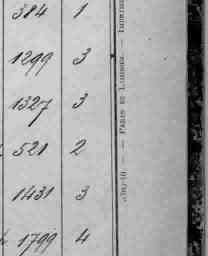 384 1
1299 3
1327 3
521 2
1431 3
1799 4
PARIS ET LIMOGES. — IMPRIM